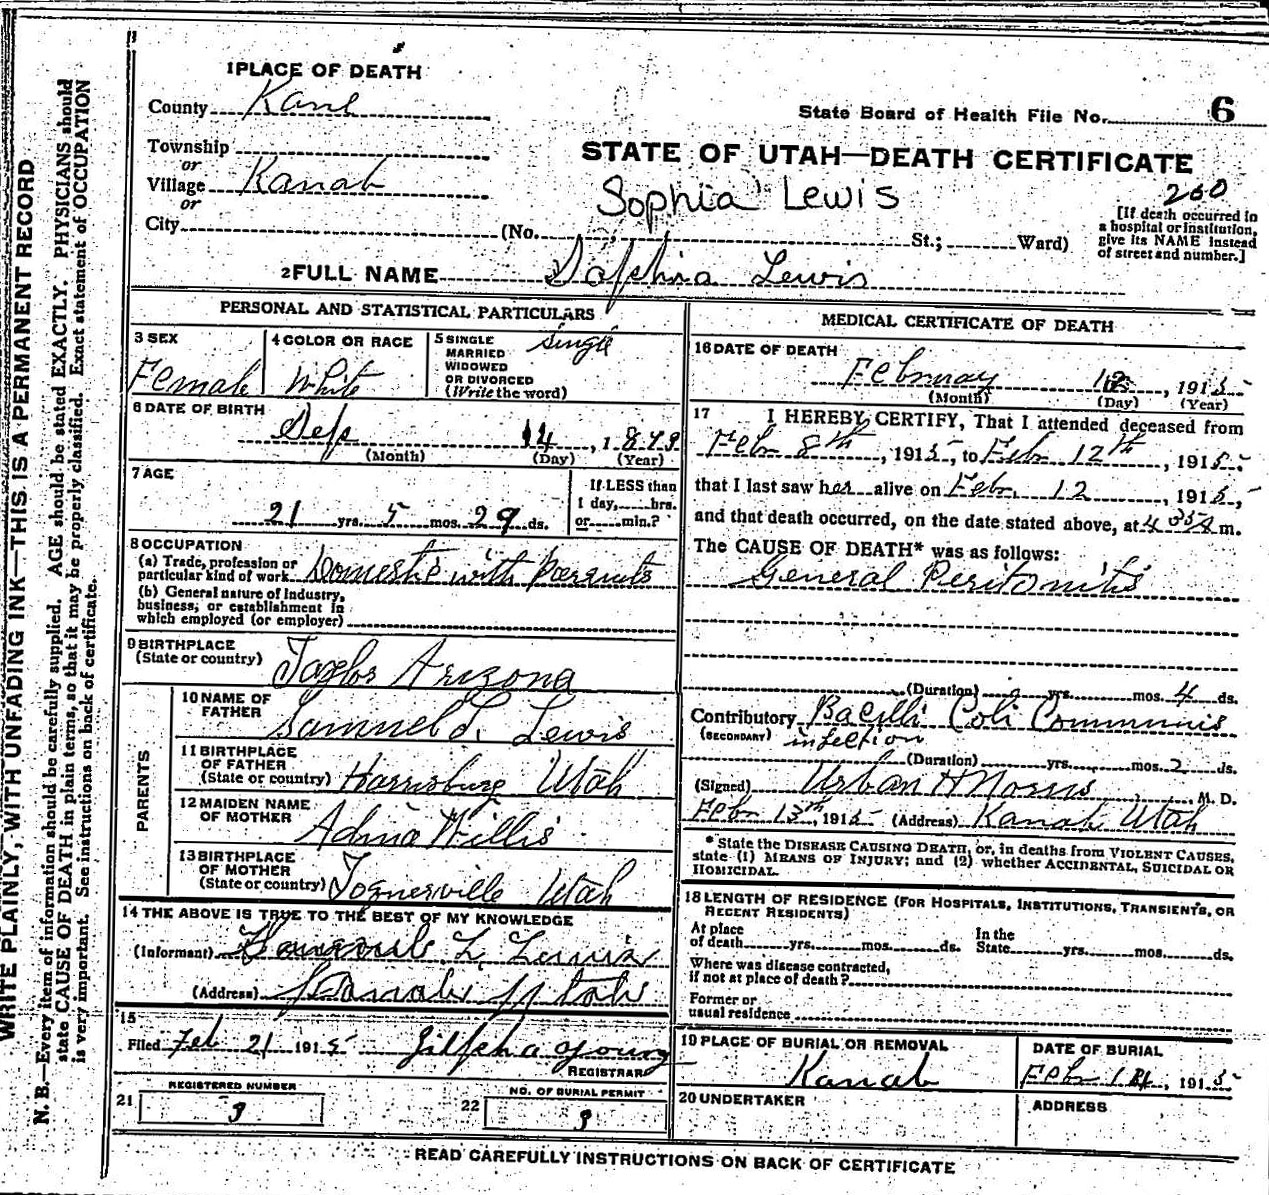 WRITE PLAINLY, WITH UNFADING INK—THIS IS A PERMANENT RECORD
N. B.—Every item of information should be carefully supplied. AGE should be stated EXACTLY. PHYSICIANS should
state CAUSE OF DEATH in plain terms, so that it may be properly classified. Exact statement of OCCUPATION
is very important. See instructions on back of certificate.
1 PLACE OF DEATH
County Kane
State Board of Health File No. 6
Township
or
Village Kanab
or
City
STATE OF UTAH—DEATH CERTIFICATE
Sophia Lewis
200
[If death occurred in
a hospital or institution,
give its NAME instead
of street and number.]
(No. St.; Ward)
2 FULL NAME Lewis
PERSONAL AND STATISTICAL PARTICULARS
3 SEX
Female
4 COLOR OR RACE
White
5 SINGLE
MARRIED
WIDOWED
OR DIVORCED
(Write the word)
Single
6 DATE OF BIRTH
Sep 14, 18
(Month) (Day) (Year)
7 AGE
21 yrs. 5 mos. 29 ds.
If LESS than
1 day, hrs.
or min.?
8 OCCUPATION
(a) Trade, profession or
particular kind of work Domestic with
(b) General nature of Industry,
business, or establishment in
which employed (or employer)
9 BIRTHPLACE
(State or country) Taylor Arizona
PARENTS
10 NAME OF
FATHER
Samuel L. Lewis
11 BIRTHPLACE
OF FATHER
(State or country) Harrisburg Utah
12 MAIDEN NAME
OF MOTHER
Willis
13 BIRTHPLACE
OF MOTHER
(State or country) Utah
14 THE ABOVE IS TRUE TO THE BEST OF MY KNOWLEDGE
(Informant) L. Lewis
(Address) Kanab Utah
15
Filed Feb 21 1915 Young
REGISTRAR
REGISTERED NUMBER
21 3
NO. OF BURIAL PERMIT
22 3
MEDICAL CERTIFICATE OF DEATH
16 DATE OF DEATH
February 1915
(Month) (Day) (Year)
17 I HEREBY CERTIFY, That I attended deceased from
Feb 8th, 1915, to Feb 12th, 1915.
that I last saw her alive on Feb. 12, 1915,
and that death occurred, on the date stated above, at m.
The CAUSE OF DEATH* was as follows:
General Peritonitis
(Duration) yrs. mos. 4 ds.
Contributory Bacilli Coli Communis
(SECONDARY) infection
(Duration) yrs. mos. 2 ds.
(Signed) Urban H Norris M. D.
Feb 13th, 1915 (Address) Kanab Utah
* State the DISEASE CAUSING DEATH, or, in deaths from VIOLENT CAUSES,
state (1) MEANS OF INJURY; and (2) whether ACCIDENTAL, SUICIDAL OR
HOMICIDAL.
18 LENGTH OF RESIDENCE (FOR HOSPITALS, INSTITUTIONS, TRANSIENTS, OR
RECENT RESIDENTS)
At place
of death yrs. mos. ds.
In the
State yrs. mos. ds.
Where was disease contracted,
if not at place of death?
Former or
usual residence
19 PLACE OF BURIAL OR REMOVAL
Kanab
DATE OF BURIAL
Feb 14, 1915
20 UNDERTAKER
ADDRESS
READ CAREFULLY INSTRUCTIONS ON BACK OF CERTIFICATE